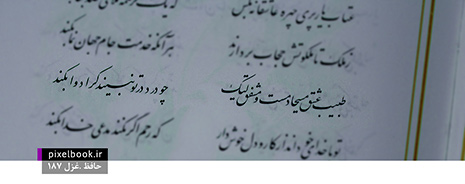 عتاب یار پری چهره عاشقانه بکش که یک کرشمه تلافی صد
ز ملک تا ملکوتش حجاب بردارند هر آنکه خدمت جام جهان نما بکند
طبیب عشق مسیحا دمست و مشفق لیک چو درد در تو نبیند کرا دوا بکند
تو با خدای خود انداز کار و دل خوش دار که رحم اگر نکند مدعی خدا بکند
pixelbook.ir
حافظ .غزل ۱۸۷